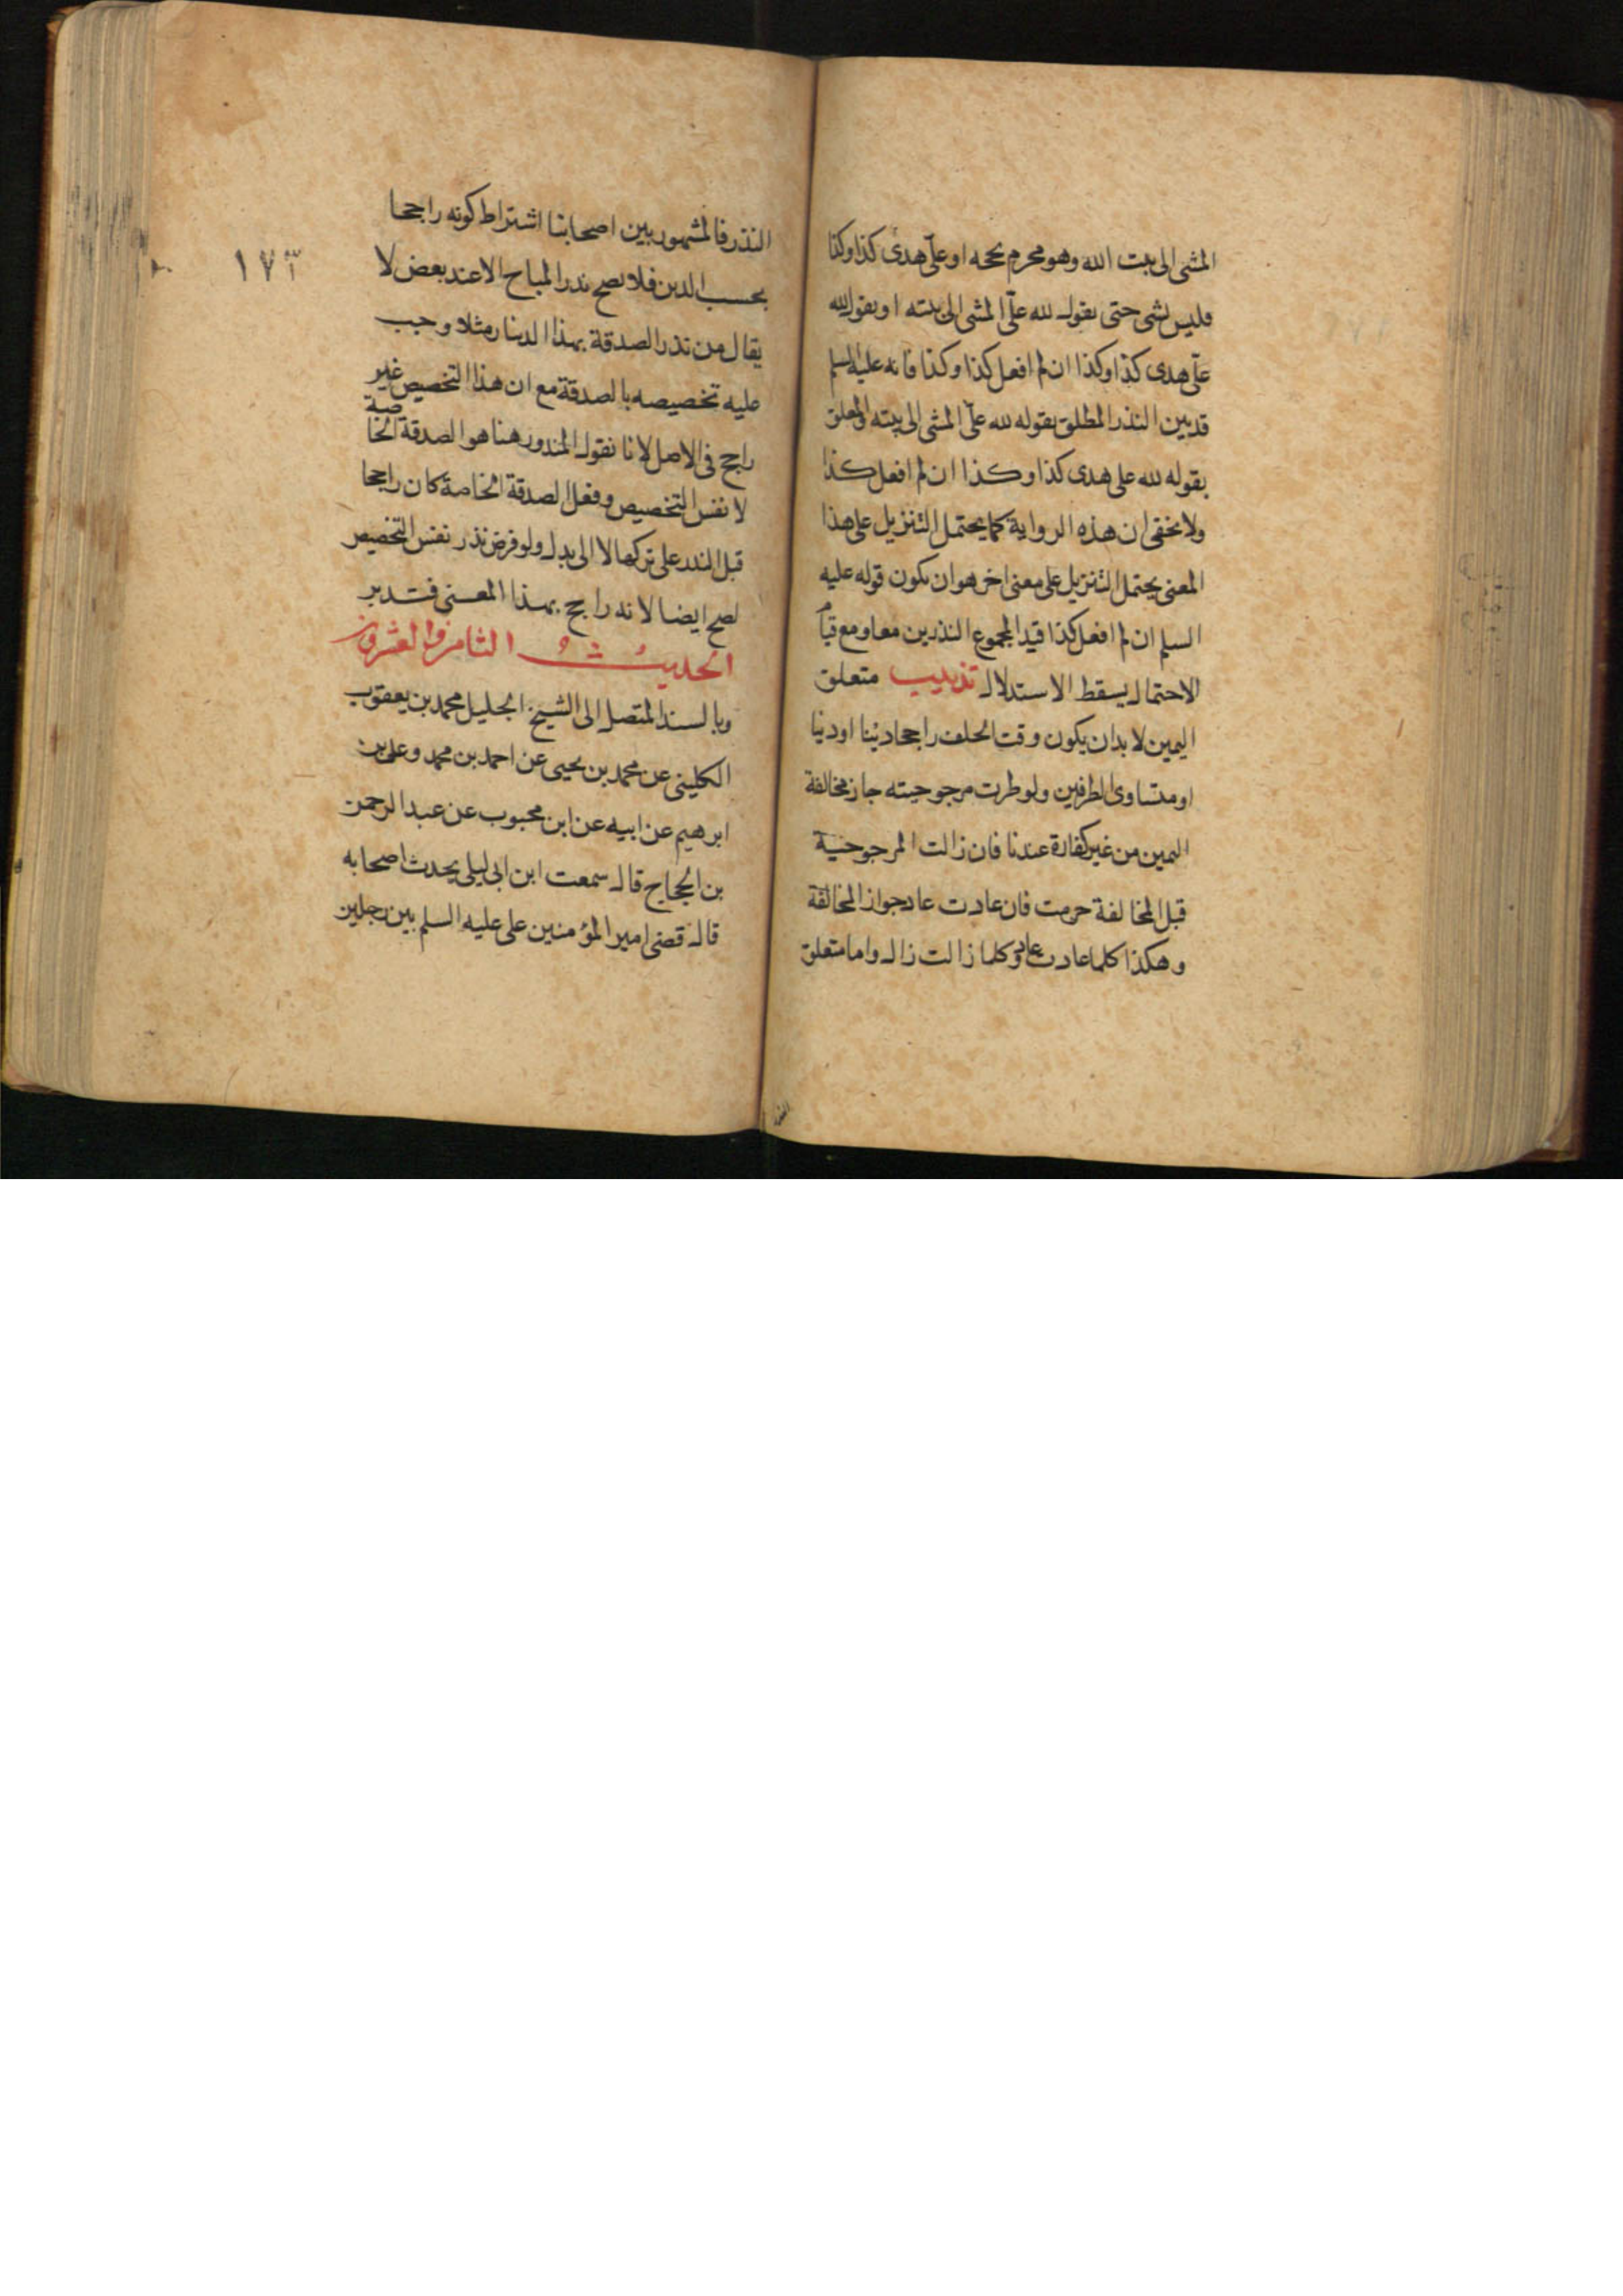 المشى الى بيت الله وهو محرم بحجه او علىّ هدى كذا وكذا
فليس بشى حتى يقول لله علىّ المشى الى بيته او يقول لله
علىّ هدى كذا وكذا ان لم افعل كذا وكذا فانه عليه السلم
قد بين النذر المطلق بقوله لله علىّ المشى الى بيته والمعلق
بقوله لله على هدى كذا وكذا ان لم افعل كذا
ولا يخفى ان هذه الرواية كما يحتمل التنزيل على هذا
المعنى يحتمل التنزيل على معنى اخر هو ان يكون قوله عليه
السلم ان لم افعل كذا قيدا لمجموع النذرين معا ومع قيام
الاحتمال يسقط الاستدلال تذنيب متعلق
اليمين لا بد ان يكون وقت الحلف راجحا دينا او دنيا
او متساوى الطرفين ولو طرت مرجوحيته جاز مخالفة
اليمين من غير كفارة عندنا فان زالت المرجوحية
قبل المخالفة حرمت فان عادت عاد جواز المخالفة
وهكذا كلما عادت عاد وكلما زالت زال واما متعلق
النذر فالمشهور بين اصحابنا اشتراط كونه راجحا
١٧٣
بحسب الدين فلا يصح نذر المباح الا عند بعض لا
يقال من نذر الصدقة بهذا الدينار مثلا وجب
عليه تخصيصه بالصدقة مع ان هذا التخصيص غير
راجح فى الاصل لانا نقول المنذور هنا هو الصدقة الخاصة
لا نفس التخصيص وفعل الصدقة الخاصة كان راجحا
قبل النذر على تركها لا الى بدل ولو فرض نذر نفس التخصيص
لصح ايضا لانه راجح بهذا المعنى فتدبر
الحديث الثامن والعشرون
وبالسند المتصل الى الشيخ الجليل محمد بن يعقوب
الكلينى عن محمد بن يحيى عن احمد بن محمد وعلى بن
ابرهيم عن ابيه عن ابن محبوب عن عبد الرحمن
بن الحجاج قال سمعت ابن ابى ليلى يحدث اصحابه
قال قضى امير المؤمنين على عليه السلم بين رجلين